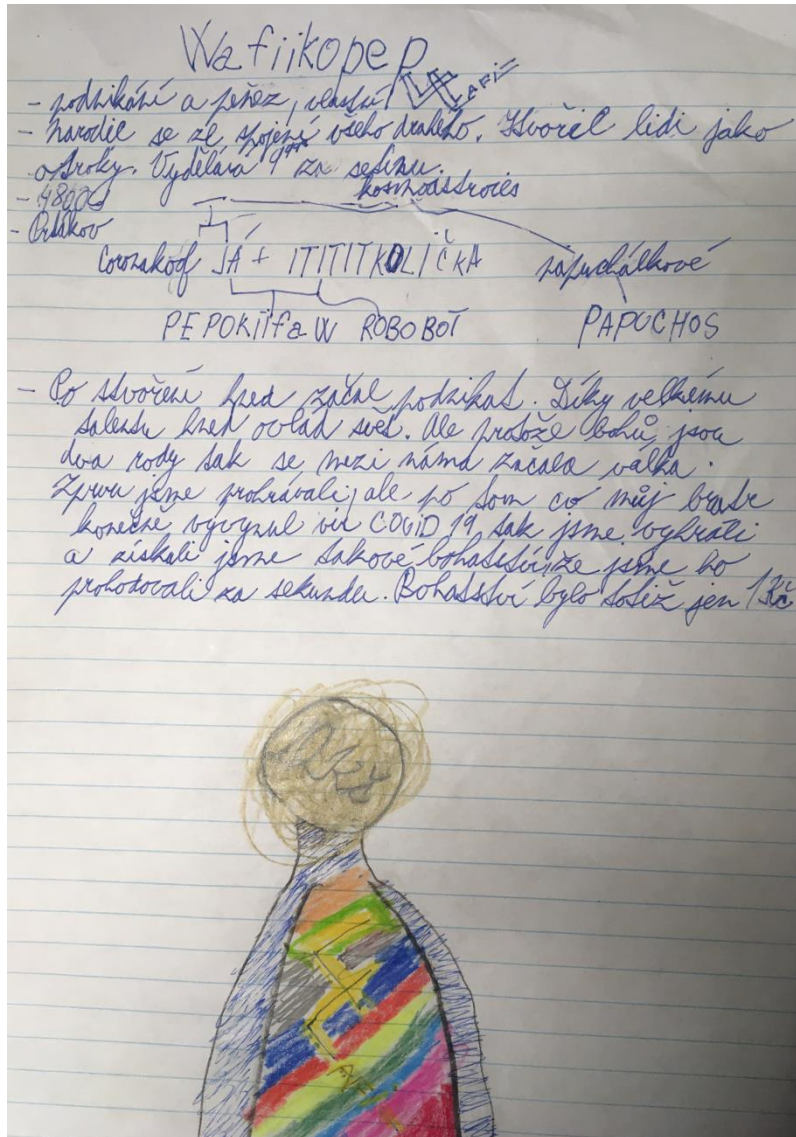 Wafiikopep
- podnikání a peněz, vlastní
- narodil se ze spojení všeho drahého. Stvořil lidi jako
otroky. Vydělává za setinu.
kosmoastroies
- Orlíkov
JÁ + ITITITKOLIČKA papuchálkové
PEPOKIIfaW ROBOBOT PAPUCHOS
- Po stvoření hned začal podnikat. Díky velkému
talentu hned ovlád svět. Ale protože bohů jsou
dva rody tak se mezi náma začala válka.
Zprvu jsme prohrávali, ale po tom co můj bratr
konečně vyvynul vir COVID 19 tak jsme vyhráli
a získali jsme takové bohatství, že jsme ho
prohodovali za sekundu. Bohatství bylo totiž jen 1 Kč